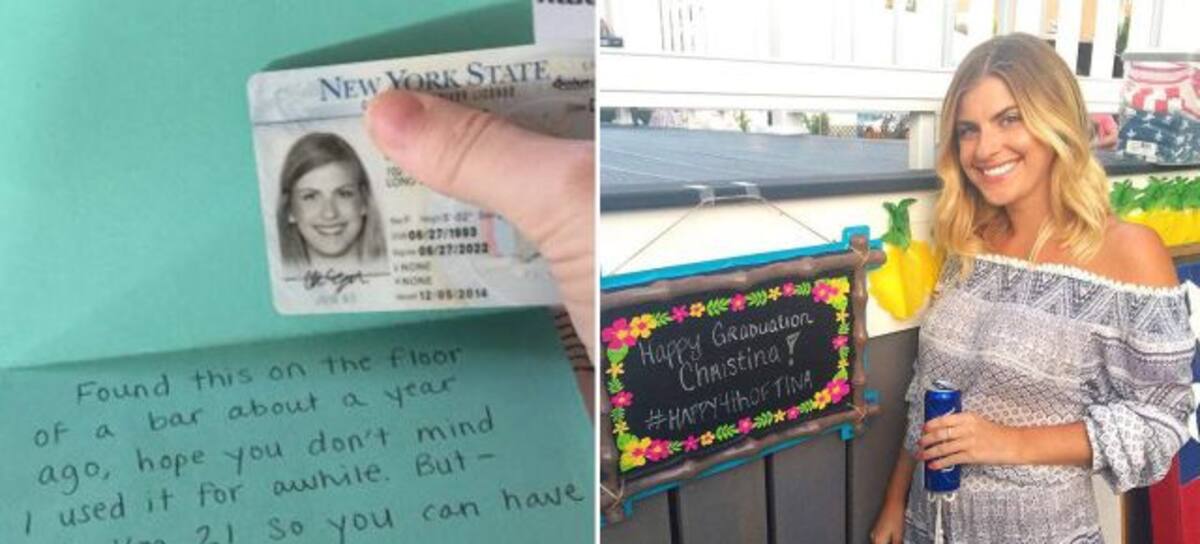 NEW YORK STATE
06/27/1993
06/27/2022
NONE
NONE
12-05-2014
Found this on the floor
of a bar about a year
ago, hope you don't mind
I used it for awhile. But-
21 so you can have
Happy Graduation
Christina!
#HAPPY4thOFTINA